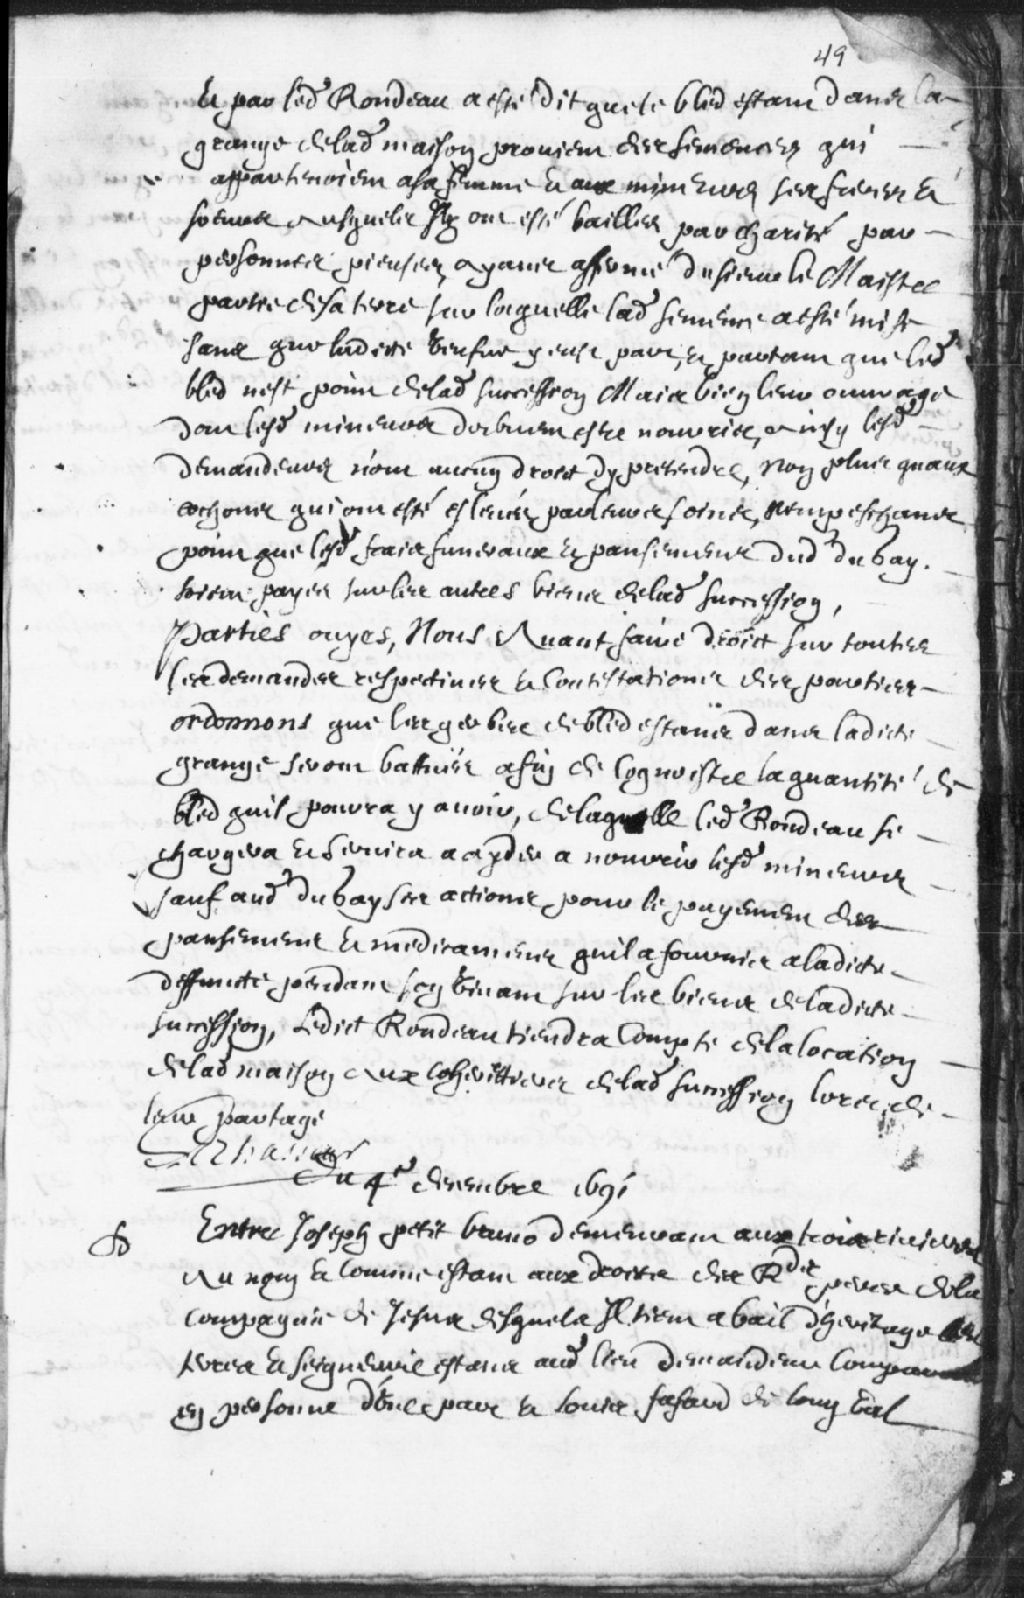 49
Et par led Rondeau a esté dit que le bled estant dans la
grange de lad maison provient des semences qui
appartenoient a sa femme et aux mineurs ses freres et
soeurs ausquels Ils ont esté baillées par charité par
personnes pieuses, ayans affermé du sieur le Maistre
partie de sa terre sur laquelle lad semence a esté mise
sans que ladicte veufve y eust part, et partant que led
bled nest point de lad succession Mais bien leur ouvrage
dont lesd mineurs doibvent estre nourris, ainsy lesd
demandeurs n'ont aucun droict dy pretendre, Non plus quaux
cochons qui ont esté eslevés par leurs soins, N'empeschans
point que lesd frais funeraux et pansemens dud dubay
soient payés sur les autres biens de lad succession,
Parties ouyes, Nous Avant faire droict sur toutes
les demandes respectives et Contestations des parties
ordonnons que les gerbes de bled estans dans ladicte
grange seront battües afin de Cognoistre la quantité de
bled quil pourra y avoir, de laquelle led Rondeau se
chargera et servira a ayder a nourrir lesd mineurs
sauf aud dubay ses actions pour le payement des
pansemens et medicamens quil a fournis a ladicte
deffuncte pendant son vivant sur les biens de ladicte
succession, Ledict Rondeau tiendra Compte de la location
de lad maison Aux Cohéritiers de lad succession lors de
leur partage
Du 4e decembre 1691
Entre Joseph petit bruno demeurant aux trois rivieres
Au nom et Comme estant aux droits des Rds peres de la
Compagnie de Jesus desquels Il tient a bail d'heritage les
terres et seigneurie estans aud lieu demandeur Comparant
en personne d'une part et Louis fafard de longval